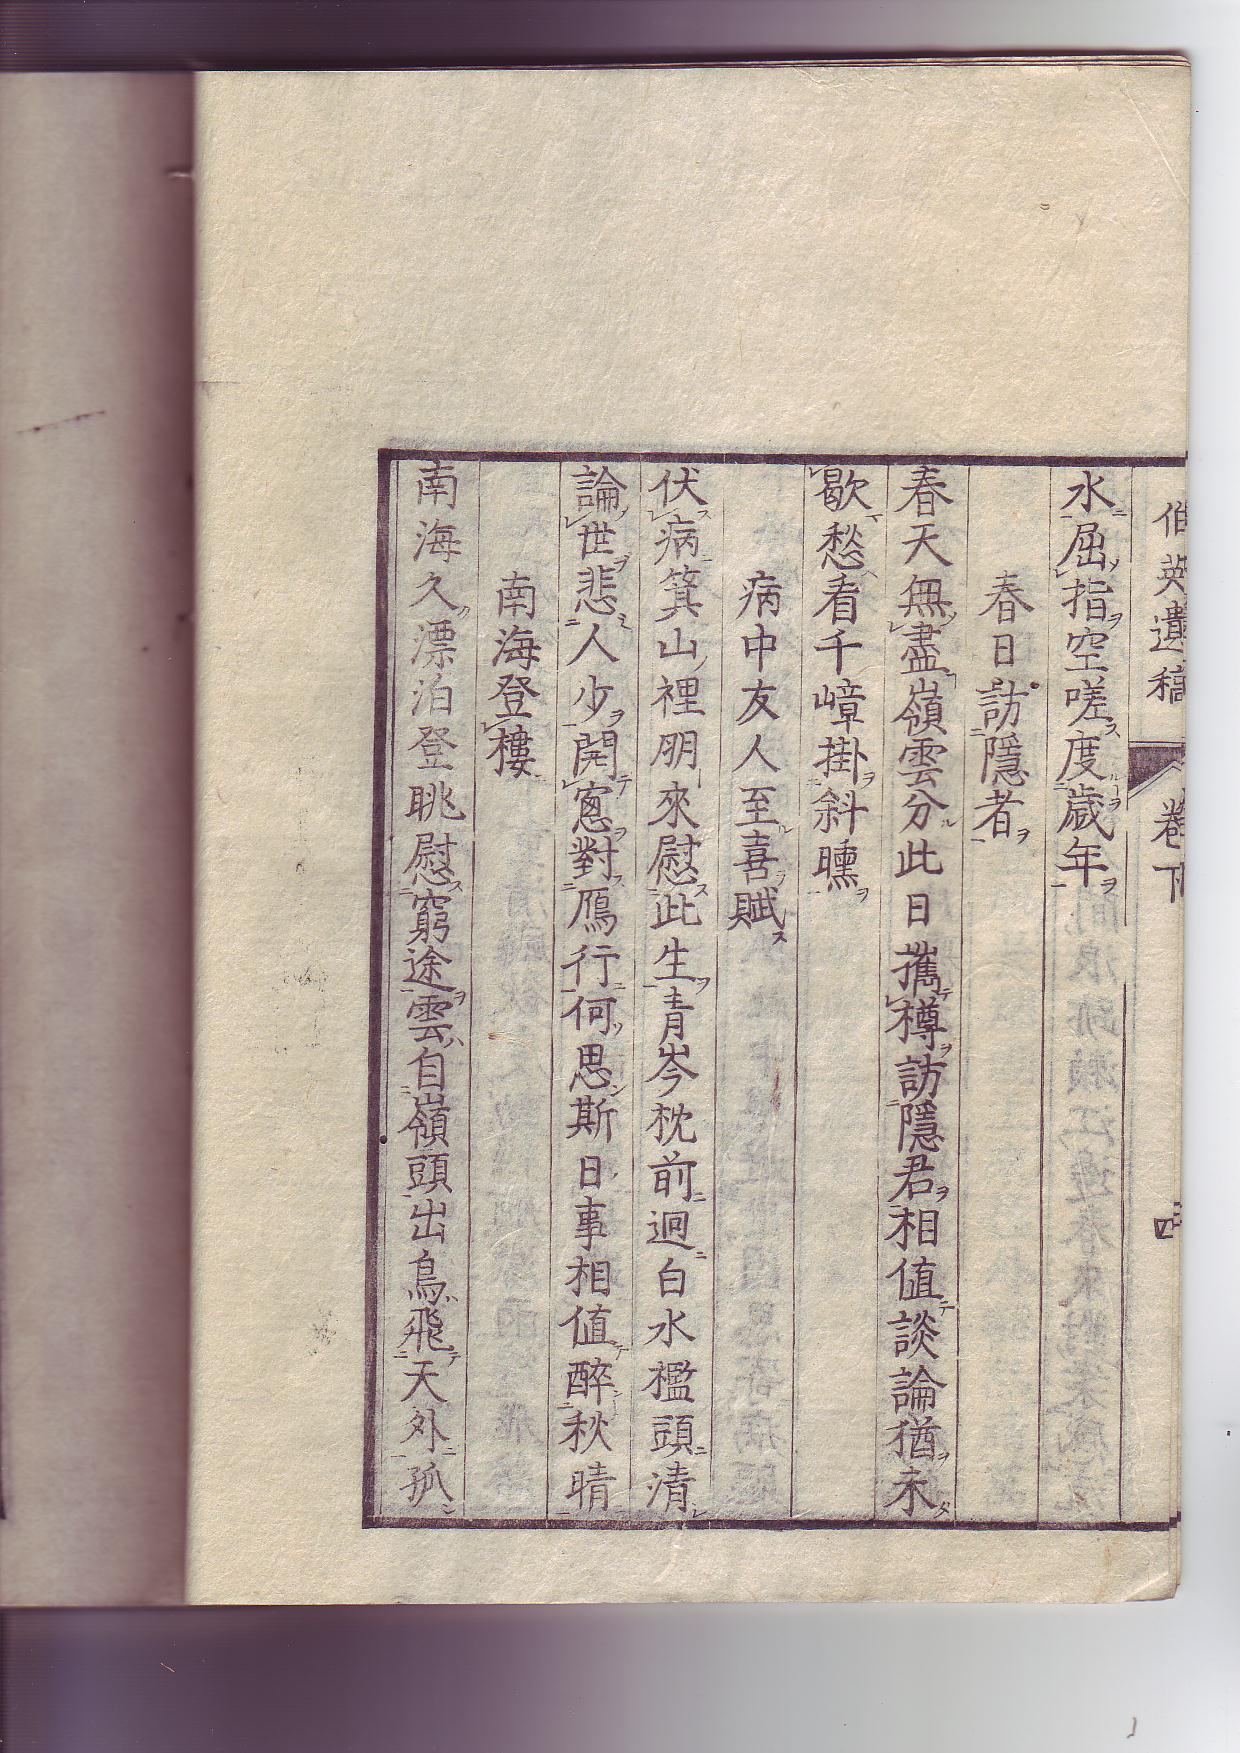 伯英遺稿 卷下
水屈指空嗟度歲年
春日訪隱者
春天無盡嶺雲分此日攜樽訪隱君相値談論猶未
歇愁看千嶂掛斜曛
病中友人至喜賦
伏病箕山裡朋來慰此生青岑枕前迥白水檻頭淸
論世悲人少開窻對鴈行何思斯日事相値醉秋晴
南海登樓
南海久漂泊登眺慰窮途雲自嶺頭出鳥飛天外孤